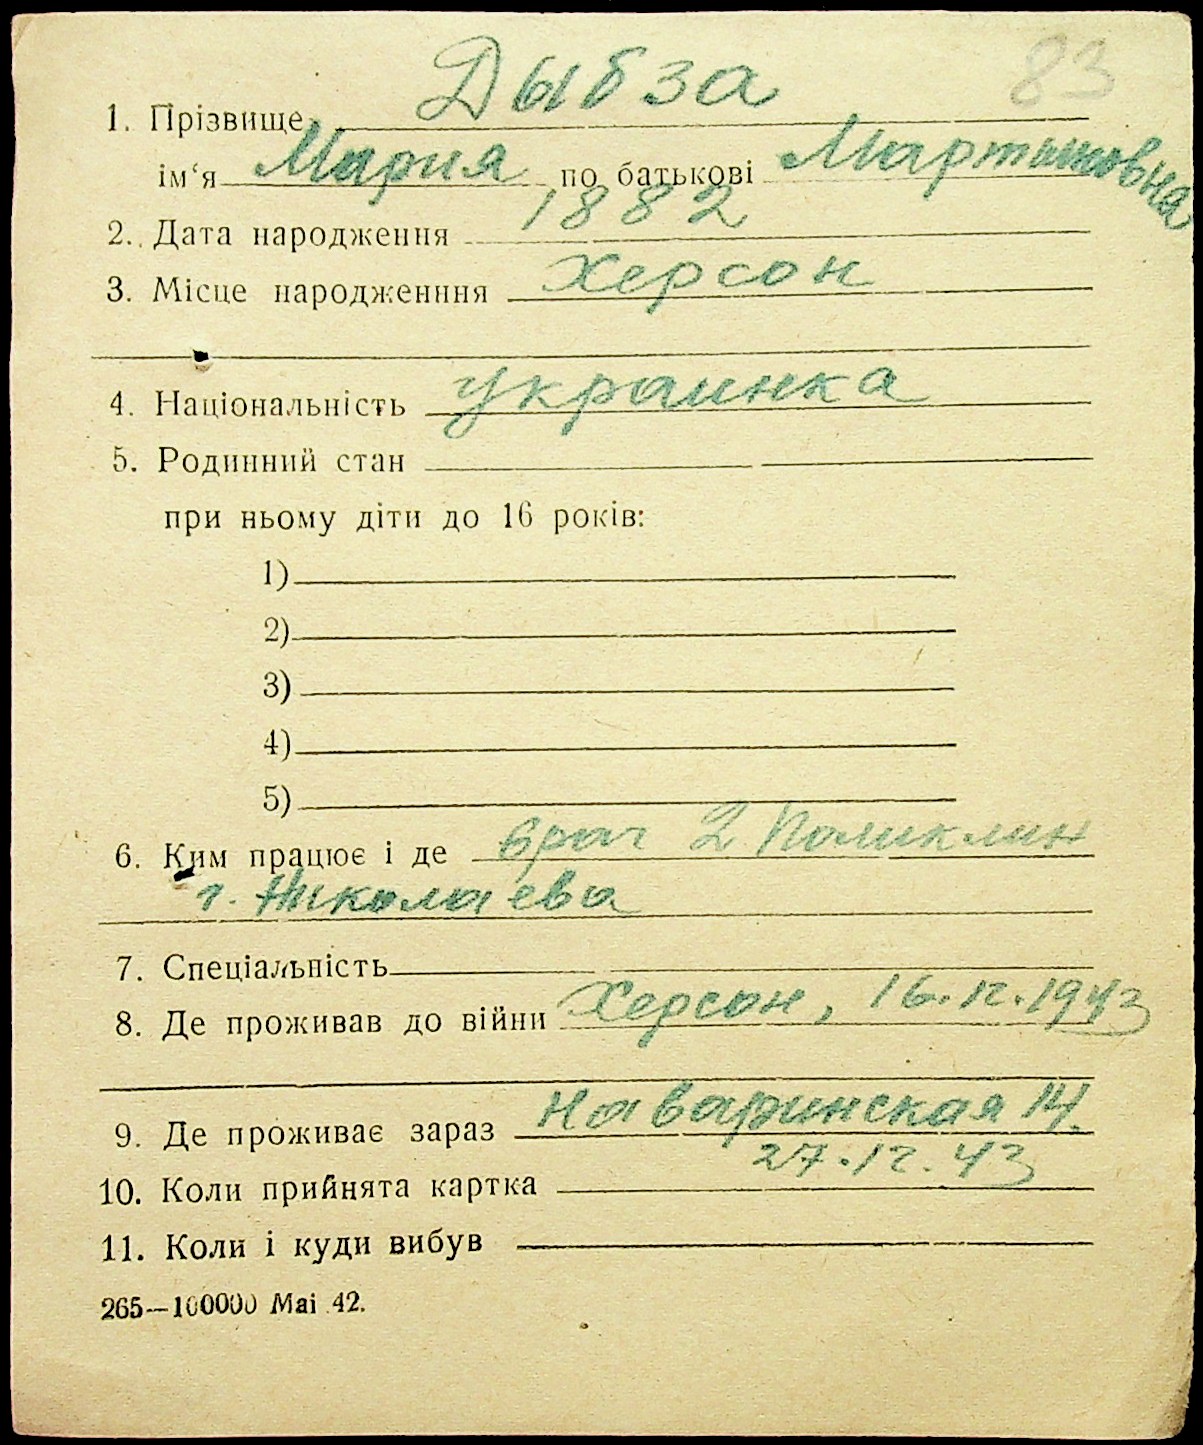 83
1. Прізвище Дыбза
ім‘я Мария по батькові Мартыновна
2. Дата народження 1882
3. Місце народженння Херсон
4. Національність украинка
5. Родинний стан
при ньому діти до 16 років:
1)
2)
3)
4)
5)
6. Ким працює і де врач 2 Поликлин
г. Николаева
7. Спеціальність
8. Де проживав до війни Херсон, 16.12.1943
9. Де проживає зараз Наваринская 14.
10. Коли прийнята картка 27.12.43
11. Коли і куди вибув
265—100000 Mai 42.